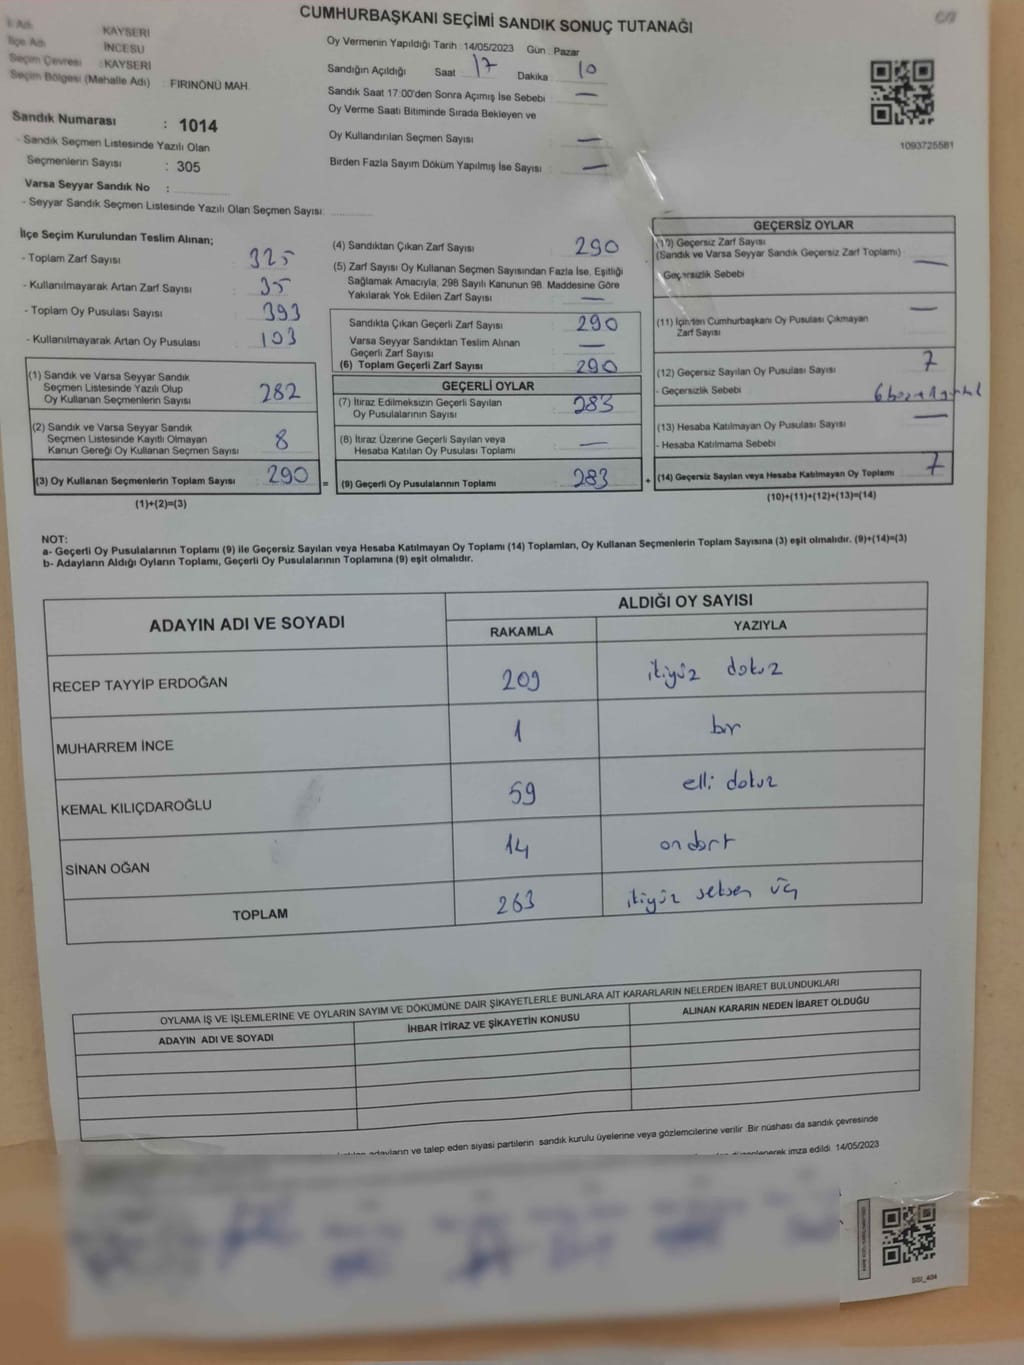 CUMHURBAŞKANI SEÇİMİ SANDIK SONUÇ TUTANAĞI
İl Adı KAYSERİ
İlçe Adı İNCESU
Seçim Çevresi : KAYSERİ
Seçim Bölgesi (Mahalle Adı) : FIRINÖNÜ MAH.
Sandık Numarası : 1014
- Sandık Seçmen Listesinde Yazılı Olan
Seçmenlerin Sayısı : 305
Varsa Seyyar Sandık No :
- Seyyar Sandık Seçmen Listesinde Yazılı Olan Seçmen Sayısı:
Oy Vermenin Yapıldığı Tarih : 14/05/2023 Gün : Pazar
Sandığın Açıldığı Saat 17 Dakika 10
Sandık Saat 17:00'den Sonra Açımış İse Sebebi : —
Oy Verme Saati Bitiminde Sırada Bekleyen ve
Oy Kullandırılan Seçmen Sayısı : —
Birden Fazla Sayım Döküm Yapılmış İse Sayısı : —
1093725581
İlçe Seçim Kurulundan Teslim Alınan;
- Toplam Zarf Sayısı : 325
- Kullanılmayarak Artan Zarf Sayısı : 35
- Toplam Oy Pusulası Sayısı : 393
- Kullanılmayarak Artan Oy Pusulası : 103
(1) Sandık ve Varsa Seyyar Sandık
Seçmen Listesinde Yazılı Olup
Oy Kullanan Seçmenlerin Sayısı : 282
(2) Sandık ve Varsa Seyyar Sandık
Seçmen Listesinde Kayıtlı Olmayan
Kanun Gereği Oy Kullanan Seçmen Sayısı : 8
(3) Oy Kullanan Seçmenlerin Toplam Sayısı : 290
(1)+(2)=(3)
(4) Sandıktan Çıkan Zarf Sayısı : 290
(5) Zarf Sayısı Oy Kullanan Seçmen Sayısından Fazla İse, Eşitliği
Sağlamak Amacıyla; 298 Sayılı Kanunun 98. Maddesine Göre
Yakılarak Yok Edilen Zarf Sayısı : —
Sandıkta Çıkan Geçerli Zarf Sayısı : 290
Varsa Seyyar Sandıktan Teslim Alınan
Geçerli Zarf Sayısı : —
(6) Toplam Geçerli Zarf Sayısı : 290
GEÇERLİ OYLAR
(7) İtiraz Edilmeksizin Geçerli Sayılan
Oy Pusulalarının Sayısı : 283
(8) İtiraz Üzerine Geçerli Sayılan veya
Hesaba Katılan Oy Pusulası Toplamı : —
= (9) Geçerli Oy Pusulalarının Toplamı : 283
GEÇERSİZ OYLAR
(10) Geçersiz Zarf Sayısı
(Sandık ve Varsa Seyyar Sandık Geçersiz Zarf Toplamı) : —
- Geçersizlik Sebebi
(11) İçinden Cumhurbaşkanı Oy Pusulası Çıkmayan
Zarf Sayısı —
(12) Geçersiz Sayılan Oy Pusulası Sayısı : 7
- Geçersizlik Sebebi :
(13) Hesaba Katılmayan Oy Pusulası Sayısı : —
- Hesaba Katılmama Sebebi :
+ (14) Geçersiz Sayılan veya Hesaba Katılmayan Oy Toplamı : 7
(10)+(11)+(12)+(13)=(14)
NOT:
a- Geçerli Oy Pusulalarının Toplamı (9) ile Geçersiz Sayılan veya Hesaba Katılmayan Oy Toplamı (14) Toplamları, Oy Kullanan Seçmenlerin Toplam Sayısına (3) eşit olmalıdır. (9)+(14)=(3)
b- Adayların Aldığı Oyların Toplamı, Geçerli Oy Pusulalarının Toplamına (9) eşit olmalıdır.
ADAYIN ADI VE SOYADI ALDIĞI OY SAYISI
RAKAMLA YAZIYLA
RECEP TAYYİP ERDOĞAN 209 ikiyüz dokuz
MUHARREM İNCE 1 bir
KEMAL KILIÇDAROĞLU 59 elli dokuz
SİNAN OĞAN 14 ondört
TOPLAM 263 ikiyüz seksen üç
OYLAMA İŞ VE İŞLEMLERİNE VE OYLARIN SAYIM VE DÖKÜMÜNE DAİR ŞİKAYETLERLE BUNLARA AİT KARARLARIN NELERDEN İBARET BULUNDUKLARI
ADAYIN ADI VE SOYADI İHBAR İTİRAZ VE ŞİKAYETİN KONUSU ALINAN KARARIN NEDEN İBARET OLDUĞU
adayların ve talep eden siyasi partilerin sandık kurulu üyelerine veya gözlemcilerine verilir .Bir nüshası da sandık çevresinde
düzenlenerek imza edildi. 14/05/2023
SSI_404